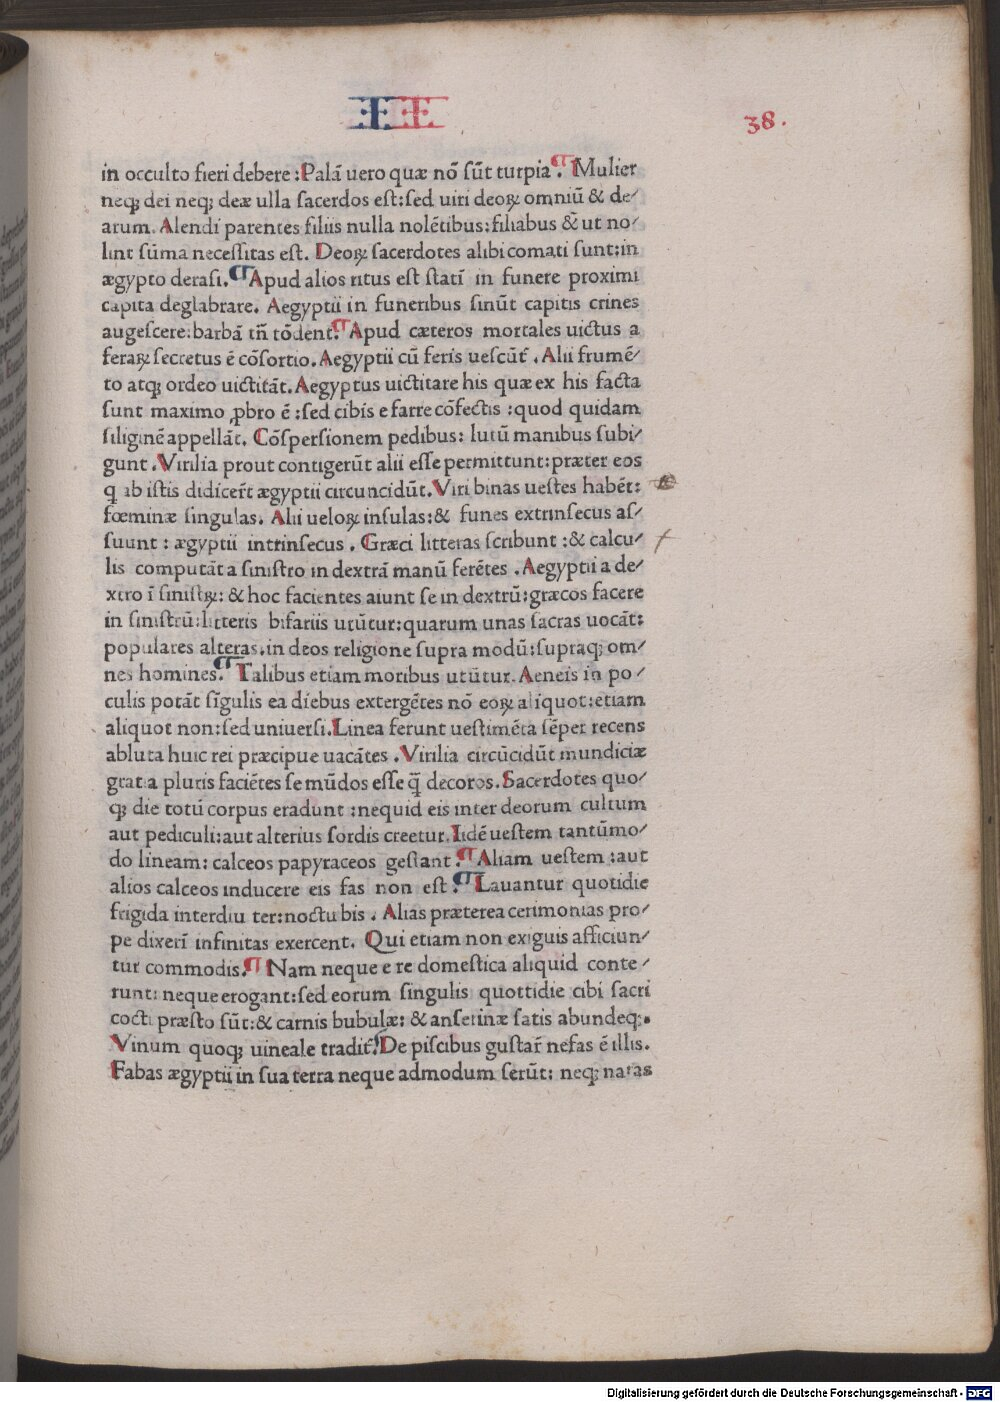 II
38.
in occulto fieri debere : Palā uero quæ nō sūt turpia. ¶ Mulier
neqꝫ dei neqꝫ deæ ulla sacerdos est: sed uiri deoꝝ omniū & de/
arum. Alendi parentes filiis nulla nolētibus: filiabus & ut no/
lint sūma necessitas est. Deoꝝ sacerdotes alibi comati sunt: in
ægypto derasi. ¶ Apud alios ritus est statī in funere proximi
capita deglabrare. Aegyptii in funeribus sinūt capitis crines
augescere: barbā tn̄ tōdent. ¶ Apud cæteros mortales uictus a
feraꝝ secretus ē cōsortio. Aegyptii cū feris uescūt̄. Alii frumē/
to atqꝫ ordeo uictitāt. Aegyptus uictitare his quæ ex his facta
sunt maximo ꝓbro ē : sed cibis e farre cōfectis : quod quidam
siliginē appellāt. Cōspersionem pedibus: lutū manibus subi/
gunt. Virilia prout contigerūt alii esse permittunt: præter eos
q̄ ab istis didicer̄t ægyptii circuncidūt. Viri binas uestes habēt:
fœminæ singulas. Alii ueloꝝ insulas: & funes extrinsecus as/
suunt : ægyptii intrinsecus. Græci litteras scribunt : & calcu/
lis computāt a sinistro in dextrā manū ferētes. Aegyptii a de/
xtro ī sinistꝝ: & hoc facientes aiunt se in dextrū: græcos facere
in sinistrū: litteris bifariis utūtur: quarum unas sacras uocāt:
populares alteras. in deos religione supra modū: supraqꝫ om/
nes homines. ¶ Talibus etiam moribus utūtur. Aeneis in po/
culis potāt sīgulis ea diebus extergētes nō eoꝝ aliquot: etiam
aliquot non: sed uniuersi. Linea ferunt uestimēta sēper recens
abluta huic rei præcipue uacātes. Virilia circūcidūt mundiciæ
gratia pluris faciētes se mūdos esse q̄ decoros. Sacerdotes quo/
qꝫ die totū corpus eradunt : nequid eis inter deorum cultum
aut pediculi: aut alterius sordis creetur. Iidē uestem tantūmo/
do lineam: calceos papyraceos gestant. ¶ Aliam uestem : aut
alios calceos inducere eis fas non est. ¶ Lauantur quotidie
frigida interdiu ter: noctu bis. Alias præterea cerimonias pro/
pe dixerī infinitas exercent. Qui etiam non exiguis afficiun/
tur commodis. ¶ Nam neque e re domestica aliquid conte/
runt: neque erogant: sed eorum singulis quottidie cibi sacri
cocti præsto sūt: & carnis bubulæ: & anserinæ satis abundeqꝫ.
Vinum quoqꝫ uineale tradit̄. ¶ De piscibus gustar̄ nefas ē illis.
Fabas ægyptii in sua terra neque admodum serūt: neqꝫ natas
Digitalisierung gefördert durch die Deutsche Forschungsgemeinschaft - DFG